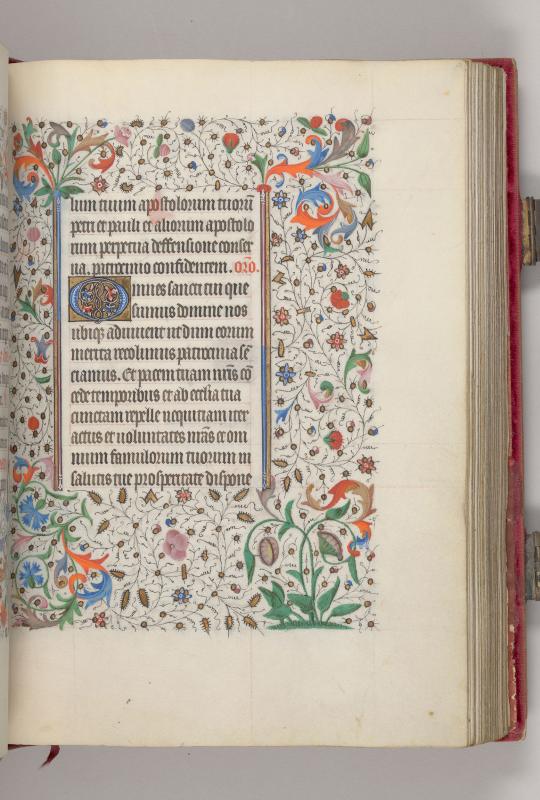 lum tuum apostolorum tuorū
petri et pauli et aliorum apostolo
rum perpetua deffensione conser
ua. patrocinio confidentem. orō.
Omnes sancti tui que
sumus domine nos
ubiqȝ adiuuent ut dum eorum
merita recolimus patrocinia sē
ciamus. Et pacem tuam nr̄is cō
cede temporibus et ab ecclīa tua
cunctam repelle nequitiam iter
actus et voluntates nr̄as et om
nium famulorum tuorum in
salutis tue prosperitate dispone